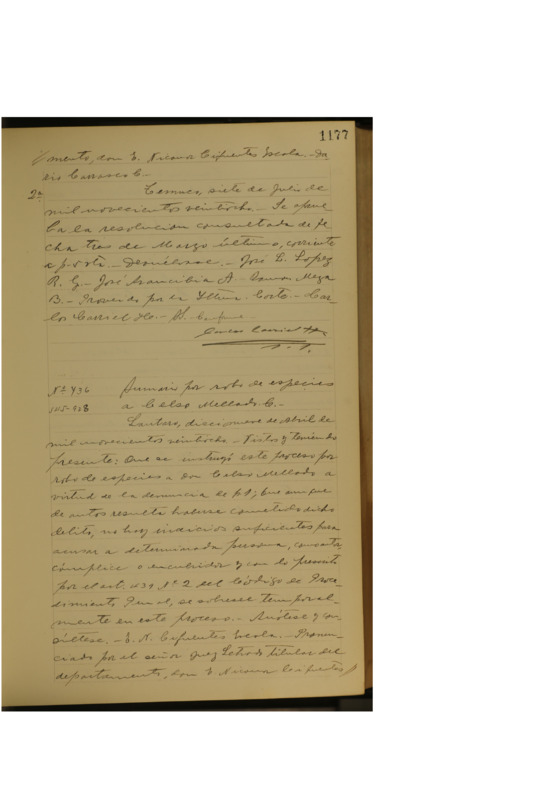 1177
mento, don E. Nicanor Cifuentes Escala. - Da
rio Carrasco C. -
2ª Temuco, siete de Julio de
mil novecientos veintiocho. - Se aprue
ba la resolucion consultada de fe
cha tres de Marzo último, corriente
a f. Devuélvase. - José L. Lopez
R. G. - José Arancibia A. - Ramon Meza
B. - Proveido por la Iltma. Corte. - Car
los
Nº 496 Sumario por robo de especies
a Celso Mellado C. -
Lautaro, diecinueve de Abril de
mil novecientos veintiocho. - Vistos y teniendo
presente: Que se instruyó este proceso por
robo de especies a don Celso Mellado a
virtud de la denuncia de f. 1; Que aunque
de autos resulta haberse cometido dicho
delito, no hay indicios suficientes para
acusar a determinada persona, como autor,
cómplice o encubridor y con lo prevenido
por el art. 439 Nº 2 del Código de Proce
dimiento Penal, se sobresee temporal-
mente en este proceso. - Anótese y con
súltese. - E. N. Cifuentes Escala. - Pronun-
ciado por el señor Juez Letrado titular del
departamento, don E. Nicanor Cifuentes